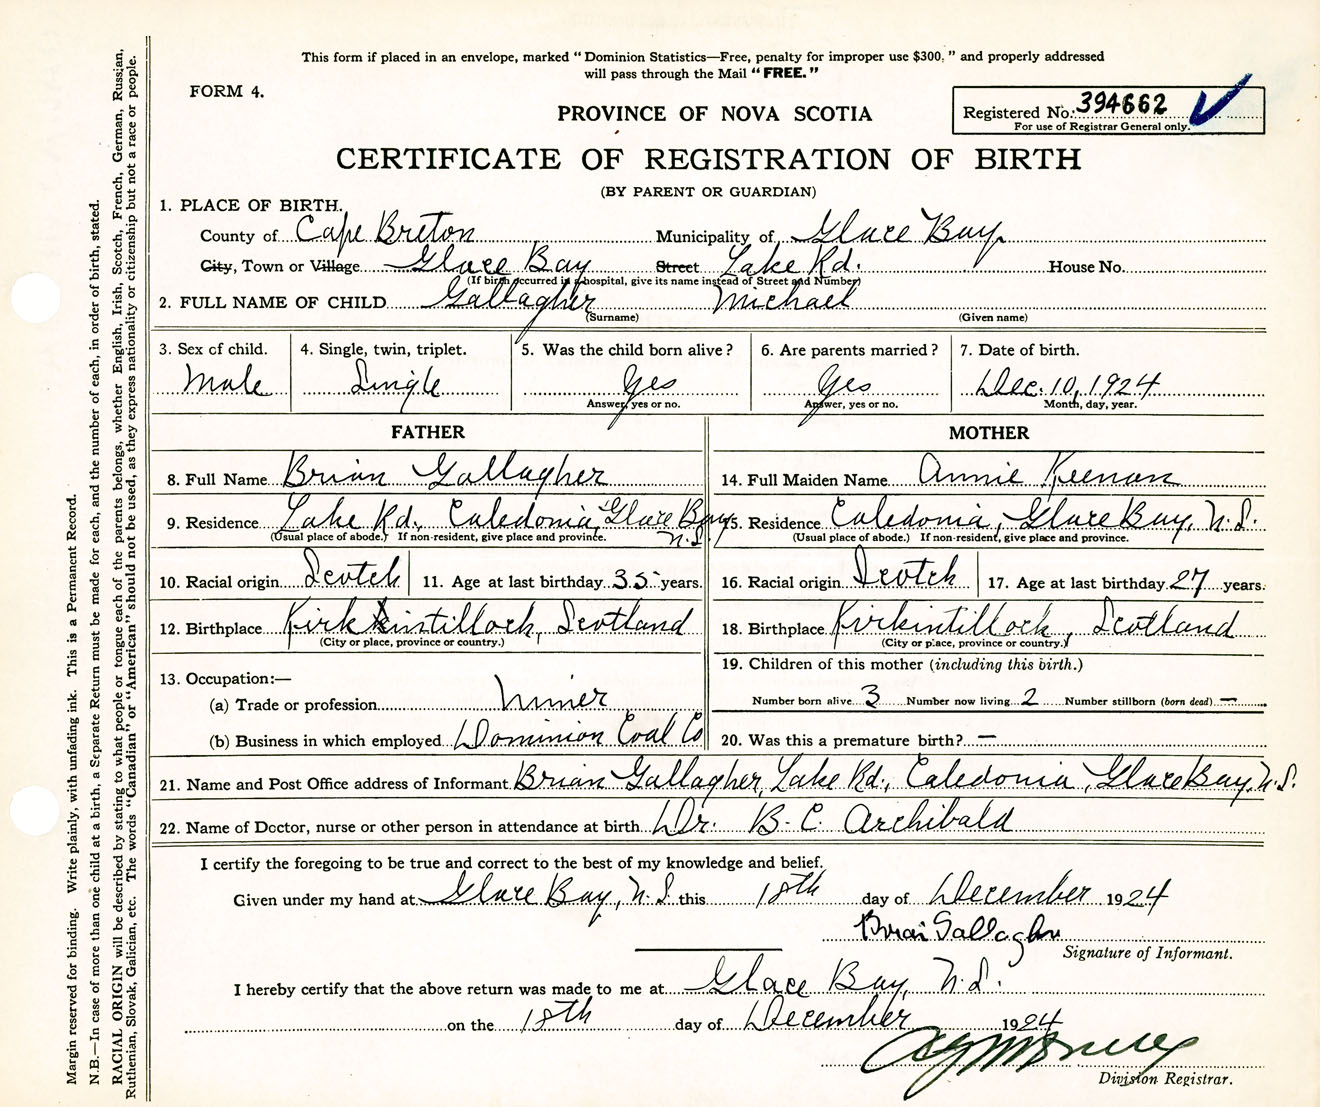 This form if placed in an envelope, marked “Dominion Statistics—Free, penalty for improper use $300,” and properly addressed
will pass through the Mail “FREE.”
FORM 4.
Registered No. 394662
For use of Registrar General only.
PROVINCE OF NOVA SCOTIA
CERTIFICATE OF REGISTRATION OF BIRTH
(BY PARENT OR GUARDIAN)
1. PLACE OF BIRTH.
County of Cape Breton Municipality of Glace Bay
City, Town or Village Glace Bay Street Lake Rd. House No.
(If birth occurred in a hospital, give its name instead of Street and Number)
2. FULL NAME OF CHILD Gallagher Michael
(Surname) (Given name)
3. Sex of child. 4. Single, twin, triplet. 5. Was the child born alive? 6. Are parents married? 7. Date of birth.
Male Single Yes Yes Dec. 10, 1924
Answer, yes or no. Answer, yes or no. Month, day, year.
FATHER MOTHER
8. Full Name Brian Gallagher 14. Full Maiden Name Annie Keenan
9. Residence Lake Rd., Caledonia, Glace Bay N.S. 15. Residence Caledonia, Glace Bay, N.S.
(Usual place of abode.) If non-resident, give place and province. (Usual place of abode.) If non-resident, give place and province.
10. Racial origin Scotch 11. Age at last birthday 35 years. 16. Racial origin Scotch 17. Age at last birthday 27 years.
12. Birthplace Kirkintillock, Scotland 18. Birthplace Kirkintillock, Scotland
(City or place, province or country.) (City or place, province or country.)
13. Occupation:— 19. Children of this mother (including this birth.)
(a) Trade or profession Miner Number born alive 3 Number now living 2 Number stillborn (born dead) —
(b) Business in which employed Dominion Coal Co 20. Was this a premature birth? —
21. Name and Post Office address of Informant Brian Gallagher, Lake Rd., Caledonia, Glace Bay, N.S.
22. Name of Doctor, nurse or other person in attendance at birth Dr. B. C. Archibald
I certify the foregoing to be true and correct to the best of my knowledge and belief.
Given under my hand at Glace Bay, N.S. this 18th day of December 1924
Brian Gallagher
Signature of Informant.
I hereby certify that the above return was made to me at Glace Bay, N.S.
on the 18th day of December 1924
Division Registrar.
Margin reserved for binding. Write plainly, with unfading ink. This is a Permanent Record.
N.B.—In case of more than one child at a birth, a Separate Return must be made for each, and the number of each, in order of birth, stated.
RACIAL ORIGIN will be described by stating to what people or tongue each of the parents belongs, whether English, Irish, Scotch, French, German, Russian,
Ruthenian, Slovak, Galician, etc. The words “Canadian” or “American” should not be used, as they express nationality or citizenship but not a race or people.